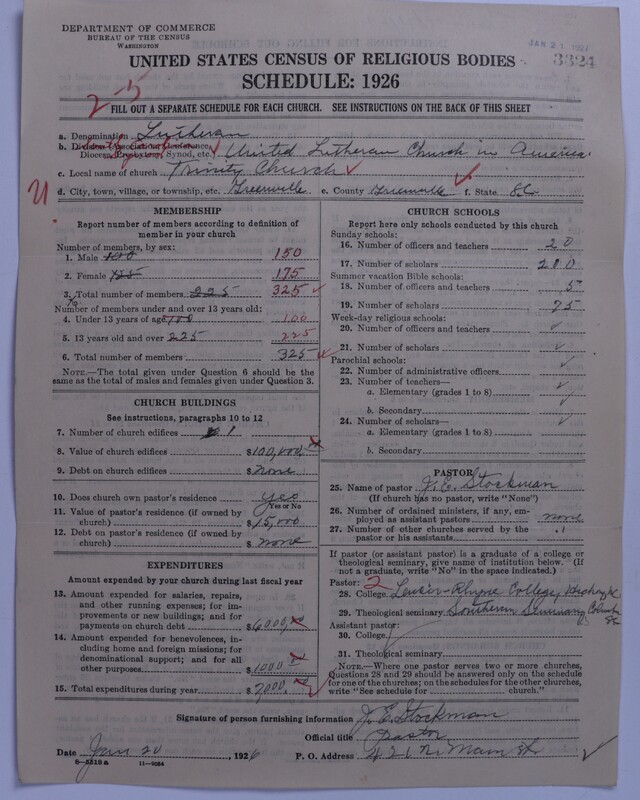 DEPARTMENT OF COMMERCE
BUREAU OF THE CENSUS
WASHINGTON
JAN 21 1927
3324
UNITED STATES CENSUS OF RELIGIOUS BODIES
SCHEDULE: 1926
2-5
FILL OUT A SEPARATE SCHEDULE FOR EACH CHURCH. SEE INSTRUCTIONS ON THE BACK OF THIS SHEET
a. Denomination Lutheran
b. Division (Association, Conference, Diocese, Presbytery, Synod, etc.) United Lutheran Church in America
c. Local name of church Trinity Church
U
d. City, town, village, or township, etc. Greenville e. County Greenville f. State SC
MEMBERSHIP
Report number of members according to definition of member in your church
Number of members, by sex:
1. Male 100 150
2. Female 125 175
3. Total number of members 225 325
Number of members under and over 13 years old:
4. Under 13 years of age 100 100
5. 13 years old and over 225 225
6. Total number of members 325
NOTE.—The total given under Question 6 should be the same as the total of males and females given under Question 3.
CHURCH BUILDINGS
See instructions, paragraphs 10 to 12
7. Number of church edifices 1
8. Value of church edifices $100,000
9. Debt on church edifices $None
10. Does church own pastor's residence yes
Yes or No
11. Value of pastor's residence (if owned by church) $15,000
12. Debt on pastor's residence (if owned by church) $none
EXPENDITURES
Amount expended by church during last fiscal year
13. Amount expended for salaries, repairs, and other running expenses; for improvements or new buildings; and for payments on church debt $6000
14. Amount expended for benevolences, including home and foreign missions; for denominational support; and for all other purposes $1000
15. Total expenditures during year $7000
CHURCH SCHOOLS
Report here only schools conducted by this church
Sunday schools:
16. Number of officers and teachers 20
17. Number of scholars 200
Summer vacation Bible schools:
18. Number of officers and teachers 5
19. Number of scholars 75
Week-day religious schools:
20. Number of officers and teachers
21. Number of scholars
Parochial schools:
22. Number of administrative officers
23. Number of teachers—
a. Elementary (grades 1 to 8)
b. Secondary
24. Number of scholars—
a. Elementary (grades 1 to 8)
b. Secondary
PASTOR
25. Name of pastor J. E. Stockman
(If church has no pastor, write "None")
26. Number of ordained ministers, if any, employed as assistant pastors none
27. Number of other churches served by the pastor or his assistants 1
If pastor (or assistant pastor) is a graduate of a college or theological seminary, give name of institution below. (If not a graduate, write "No" in the space indicated.)
Pastor: 2
28. College Lenoir-Rhyne College, Hickory NC
29. Theological seminary Southern Seminary Columbia SC
Assistant pastor:
30. College
31. Theological seminary
NOTE.—Where one pastor serves two or more churches, Questions 28 and 29 should be answered only on the schedule for one of the churches; on the schedules for the other churches, write "See schedule for church."
Signature of person furnishing information J. E. Stockman
Official title Pastor
Date Jan 20, 1926 P. O. Address 421 N. Main St
8—5318a 11—9054